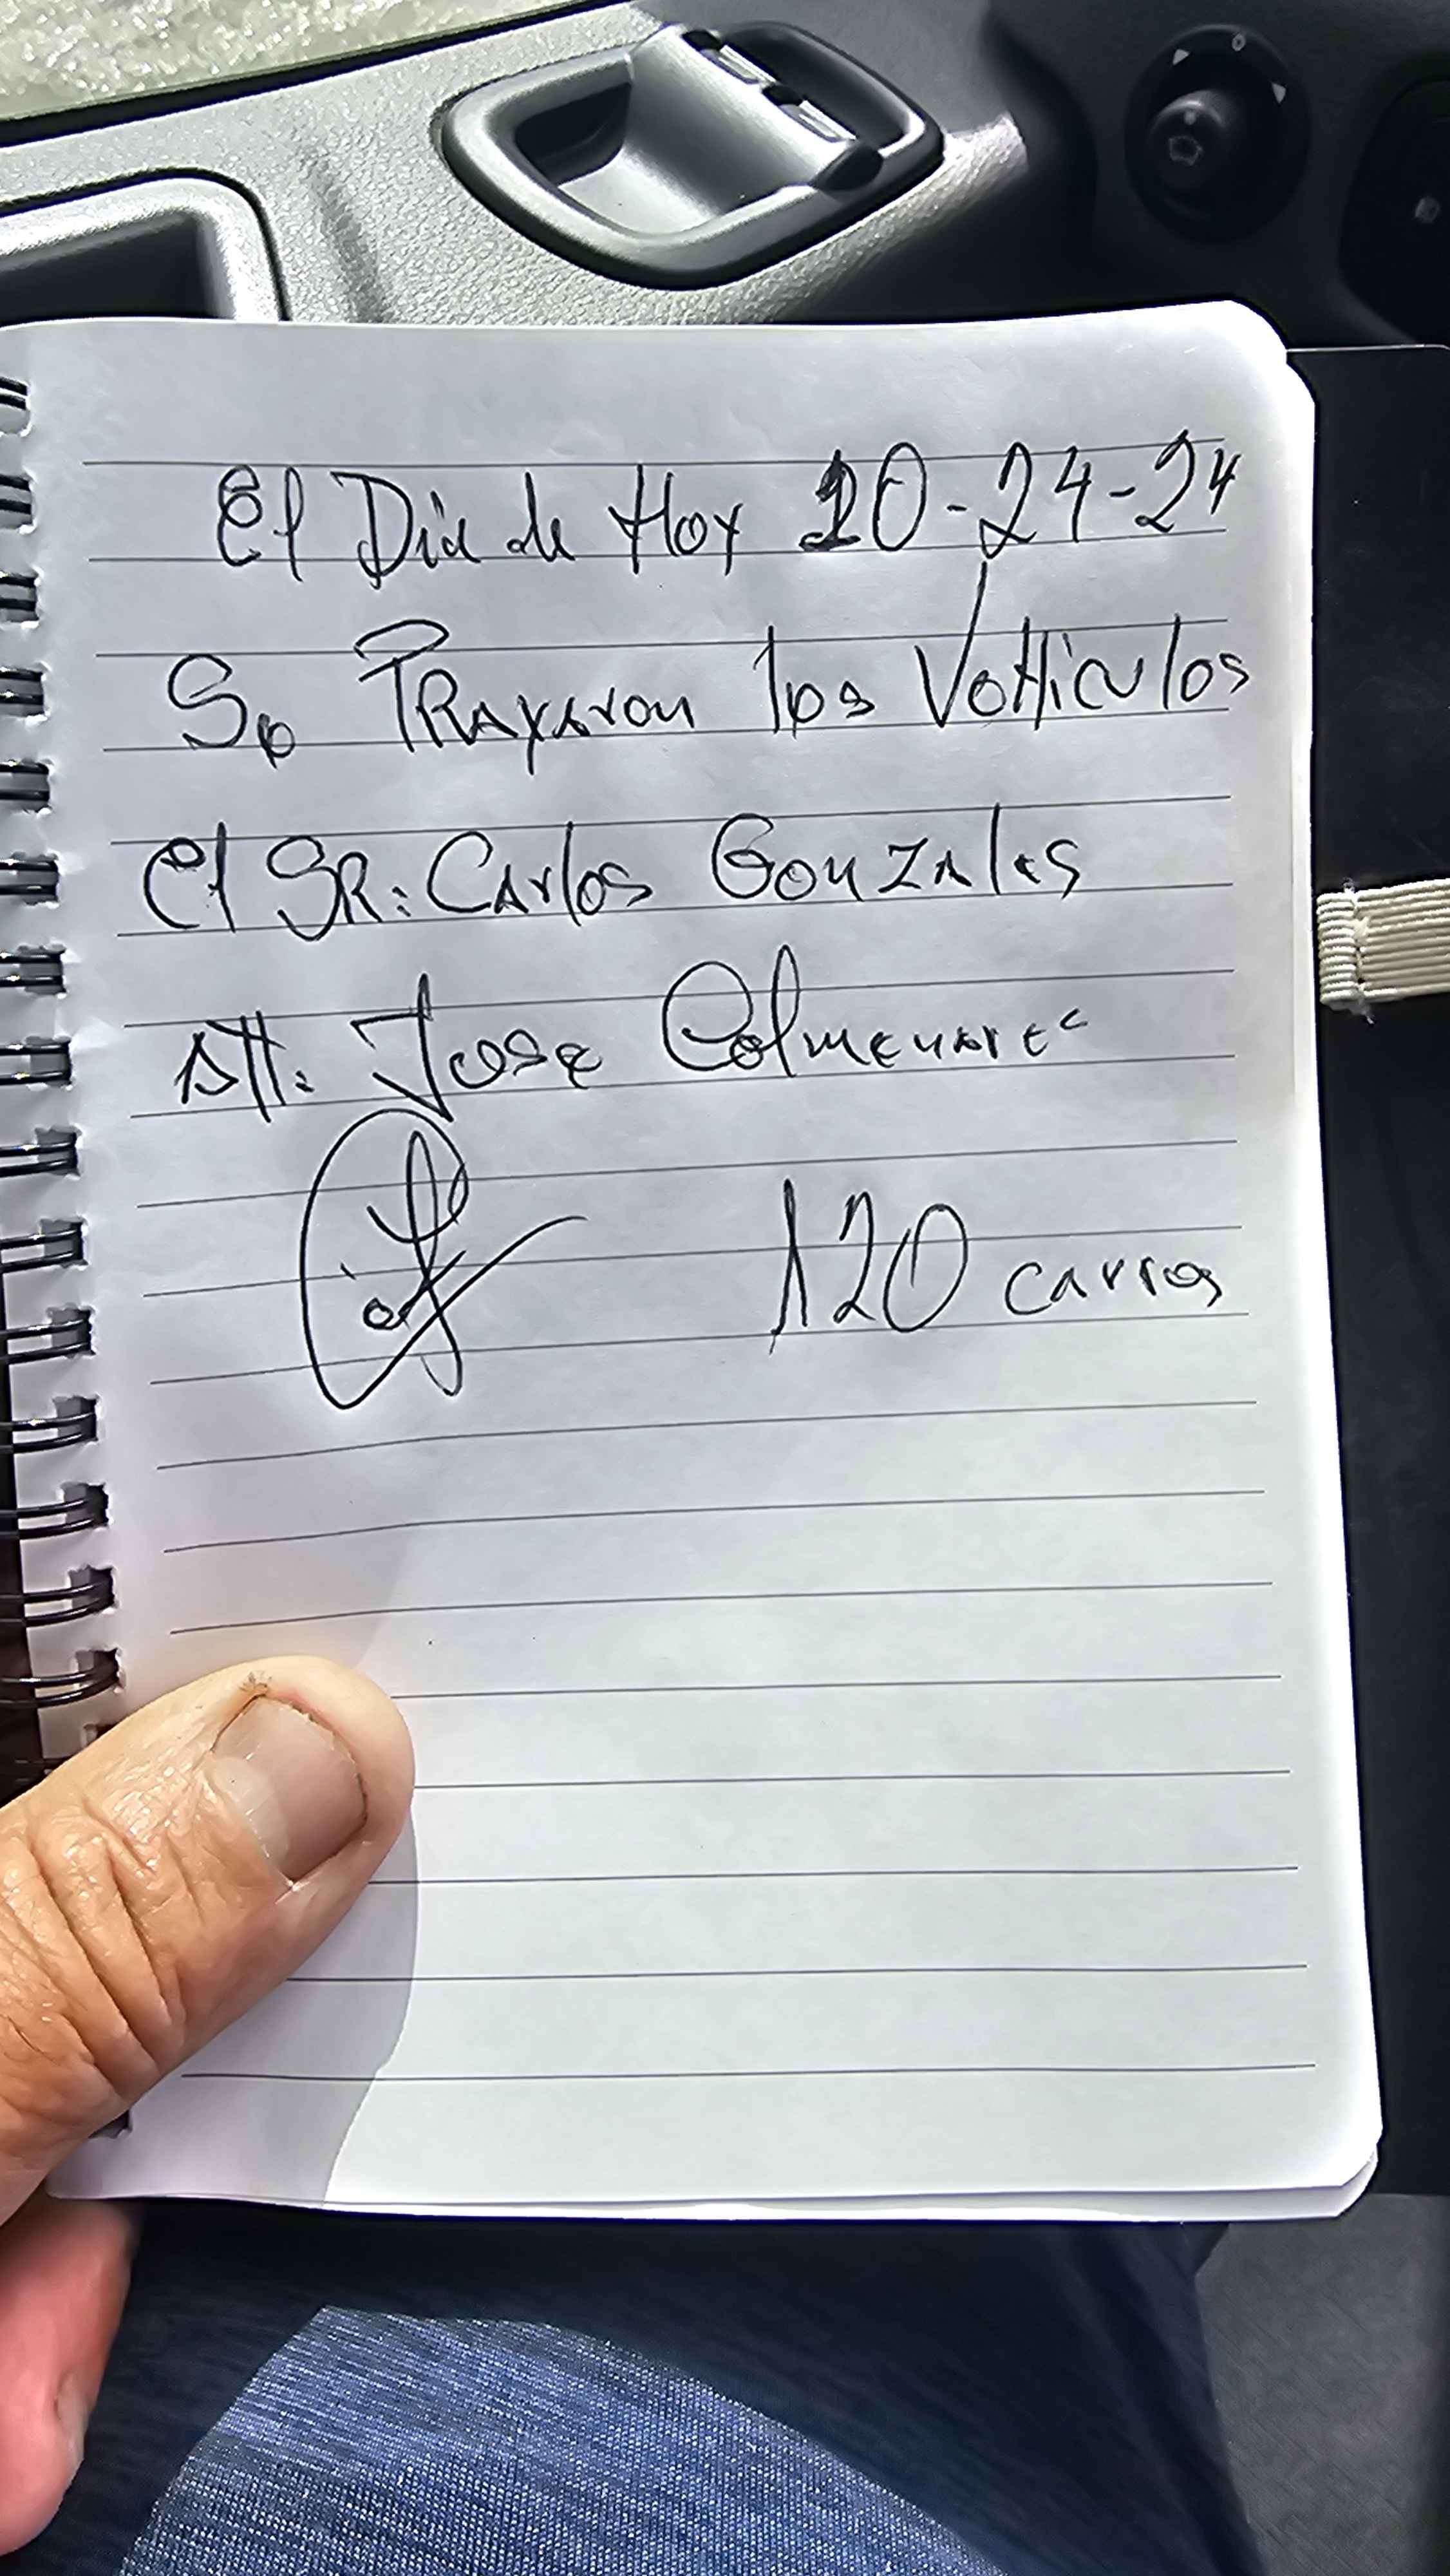 El Dia de Hoy 10-24-24
Se TRAXERON los VeHiculos
El SR: Carlos Gonzales
Att: Jose Colmenares
120 carros